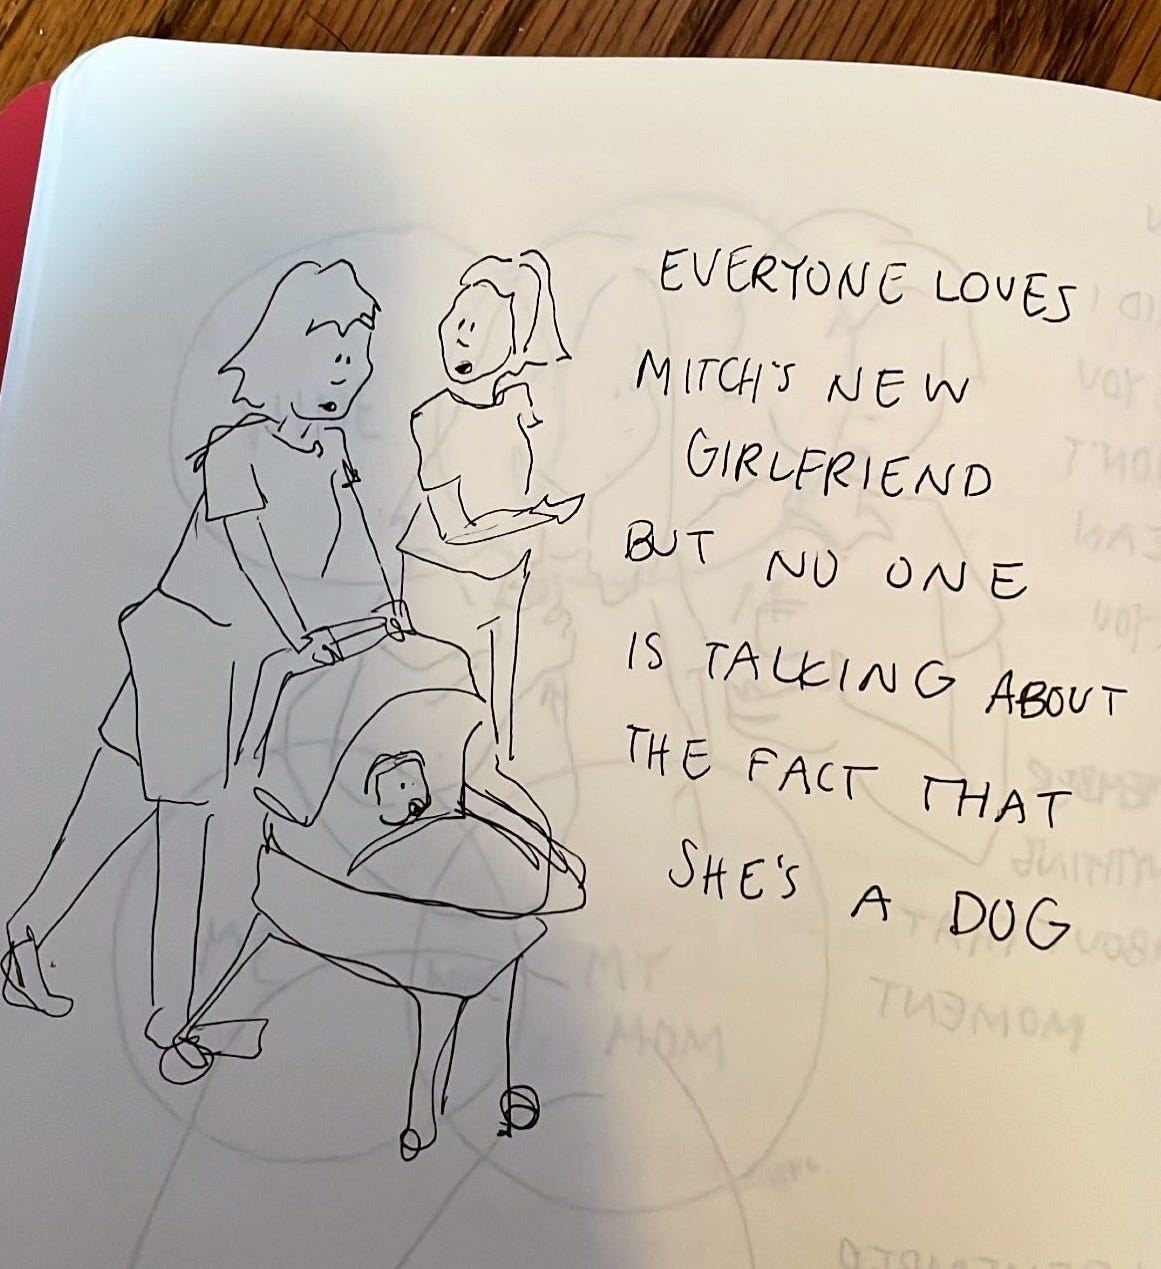 EVERYONE LOVES
MITCH'S NEW
GIRLFRIEND
BUT NO ONE
IS TALKING ABOUT
THE FACT THAT
SHE'S A DOG
MY
MOM
MOMENT